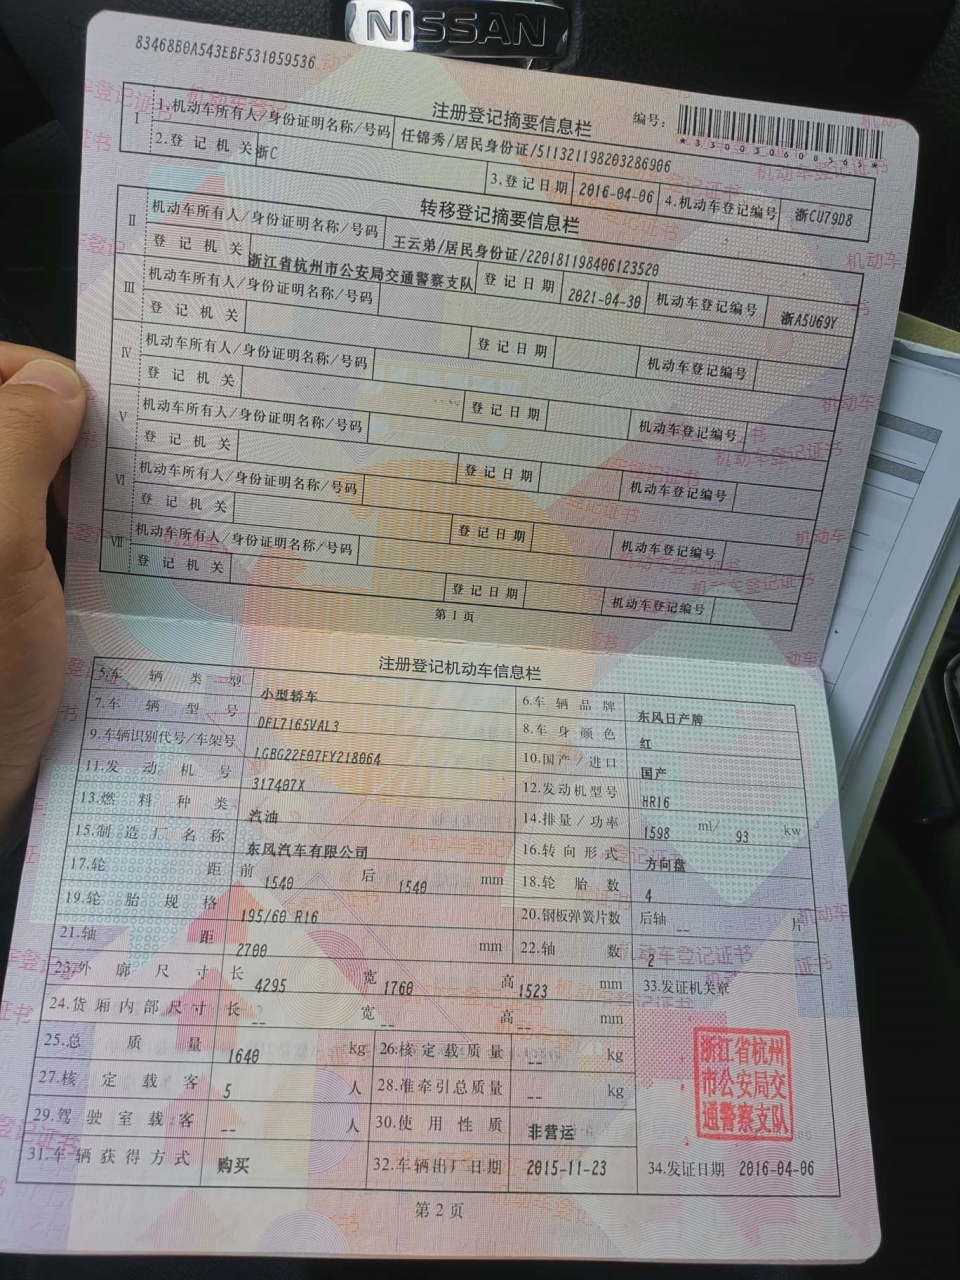 NISSAN
83468B0A543EBF531059536
注册登记摘要信息栏
编号:
*330030608565*
I
1.机动车所有人/身份证明名称/号码 任锦秀/居民身份证/511321198203286906
2.登记机关 浙C 3.登记日期 2016-04-06 4.机动车登记编号 浙CU79D8
转移登记摘要信息栏
II 机动车所有人/身份证明名称/号码 王云弟/居民身份证/220181198406123520
登记机关 浙江省杭州市公安局交通警察支队 登记日期 2021-04-30 机动车登记编号 浙A5U69Y
III 机动车所有人/身份证明名称/号码
登记机关 登记日期 机动车登记编号
IV 机动车所有人/身份证明名称/号码
登记机关 登记日期 机动车登记编号
V 机动车所有人/身份证明名称/号码
登记机关 登记日期 机动车登记编号
VI 机动车所有人/身份证明名称/号码
登记机关 登记日期 机动车登记编号
VII 机动车所有人/身份证明名称/号码
登记机关 登记日期 机动车登记编号
第1页
注册登记机动车信息栏
5.车辆类型 小型轿车 6.车辆品牌 东风日产牌
7.车辆型号 DFL7165VAL3 8.车身颜色 红
9.车辆识别代号/车架号 LGBG22E07FY218064 10.国产/进口 国产
11.发动机号 317407X 12.发动机型号 HR16
13.燃料种类 汽油 14.排量/功率 1598 ml/ 93 kw
15.制造厂名称 东风汽车有限公司 16.转向形式 方向盘
17.轮距 前 1540 后 1540 mm 18.轮胎数 4
19.轮胎规格 195/60 R16 20.钢板弹簧片数 后轴 -- 片
21.轴距 2700 mm 22.轴数 2
23.外廓尺寸 长 4295 宽 1760 高 1523 mm 33.发证机关章
24.货厢内部尺寸 长 -- 宽 -- 高 -- mm
25.总质量 1640 kg 26.核定载质量 -- kg
27.核定载客 5 人 28.准牵引总质量 -- kg
29.驾驶室载客 -- 人 30.使用性质 非营运
浙江省杭州
市公安局交
通警察支队
31.车辆获得方式 购买 32.车辆出厂日期 2015-11-23 34.发证日期 2016-04-06
第2页